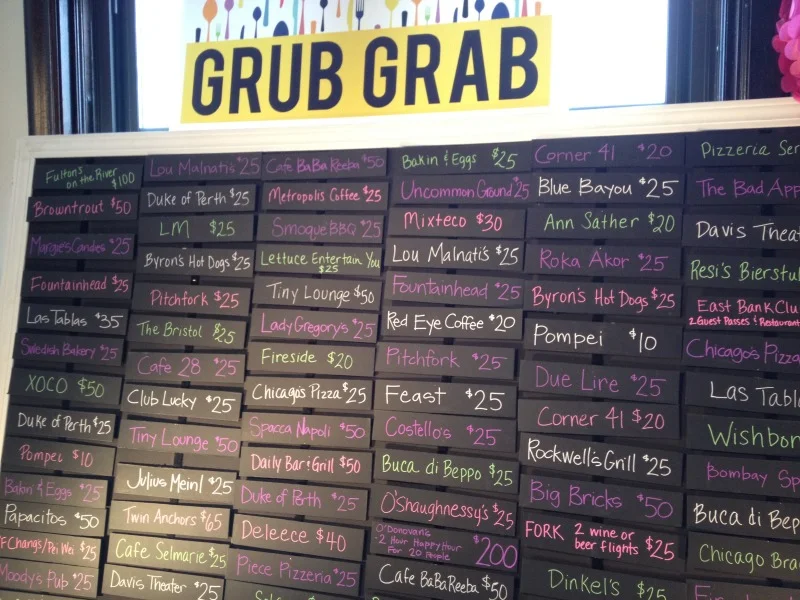 GRUB GRAB
Fulton's
on the River $100
Browntrout $50
Margie's Candies $25
Fountainhead $25
Las Tablas $35
Swedish Bakery $25
XOCO $50
Duke of Perth $25
Pompei $10
Bakin & Eggs $25
Papacitos $50
PF Changs/Pei Wei $25
Moody's Pub $25
Lou Malnati's $25
Duke of Perth $25
LM $25
Byron's Hot Dogs $25
Pitchfork $25
The Bristol $25
Cafe 28 $25
Club Lucky $25
Tiny Lounge $50
Julius Meinl $25
Twin Anchors $65
Cafe Selmarie $25
Davis Theater $25
Cafe BaBaReeba $50
Metropolis Coffee $25
Smoque BBQ $25
Lettuce Entertain You
$25
Tiny Lounge $50
Lady Gregory's $25
Fireside $20
Chicago's Pizza $25
Spacca Napoli $50
Daily Bar & Grill $50
Duke of Perth $25
Deleece $40
Piece Pizzeria $25
Bakin & Eggs $25
Uncommon Ground $25
Mixteco $30
Lou Malnati's $25
Fountainhead $25
Red Eye Coffee $20
Pitchfork $25
Feast $25
Costello's $25
Buca di Beppo $25
O'Shaughnessy's $25
O'Donovan's
2 Hour Happy Hour
For 20 People $200
Cafe BaBaReeba $50
Corner 41 $20
Blue Bayou $25
Ann Sather $20
Roka Akor $25
Byron's Hot Dogs $25
Pompei $10
Due Lire $25
Corner 41 $20
Rockwell's Grill $25
Big Bricks $50
FORK 2 wine or
beer flights $25
Dinkel's $25
Pizzeria Ser
The Bad App
Davis Theat
Resi's Bierstu
East Bank Clu
2 Guest Passes & Restaurant
Chicago's Pizza
Las Tabl
Wishbon
Bombay Sp
Buca di Bepp
Chicago Bra